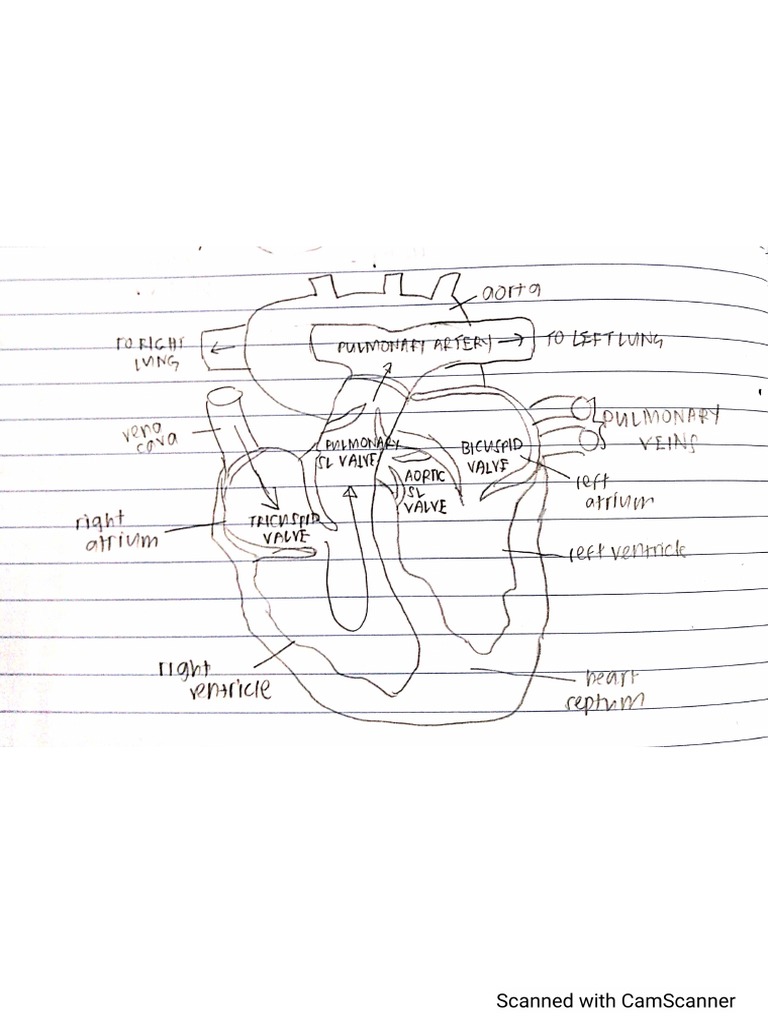 aorta
TO RIGHT
LUNG
PULMONARY ARTERY
TO LEFT LUNG
vena
cava
PULMONARY
VEINS
PULMONARY
SL VALVE
BICUSPID
VALVE
AORTIC
SL
VALVE
left
atrium
right
atrium
TRICUSPID
VALVE
left ventricle
right
ventricle
heart
septum
Scanned with CamScanner